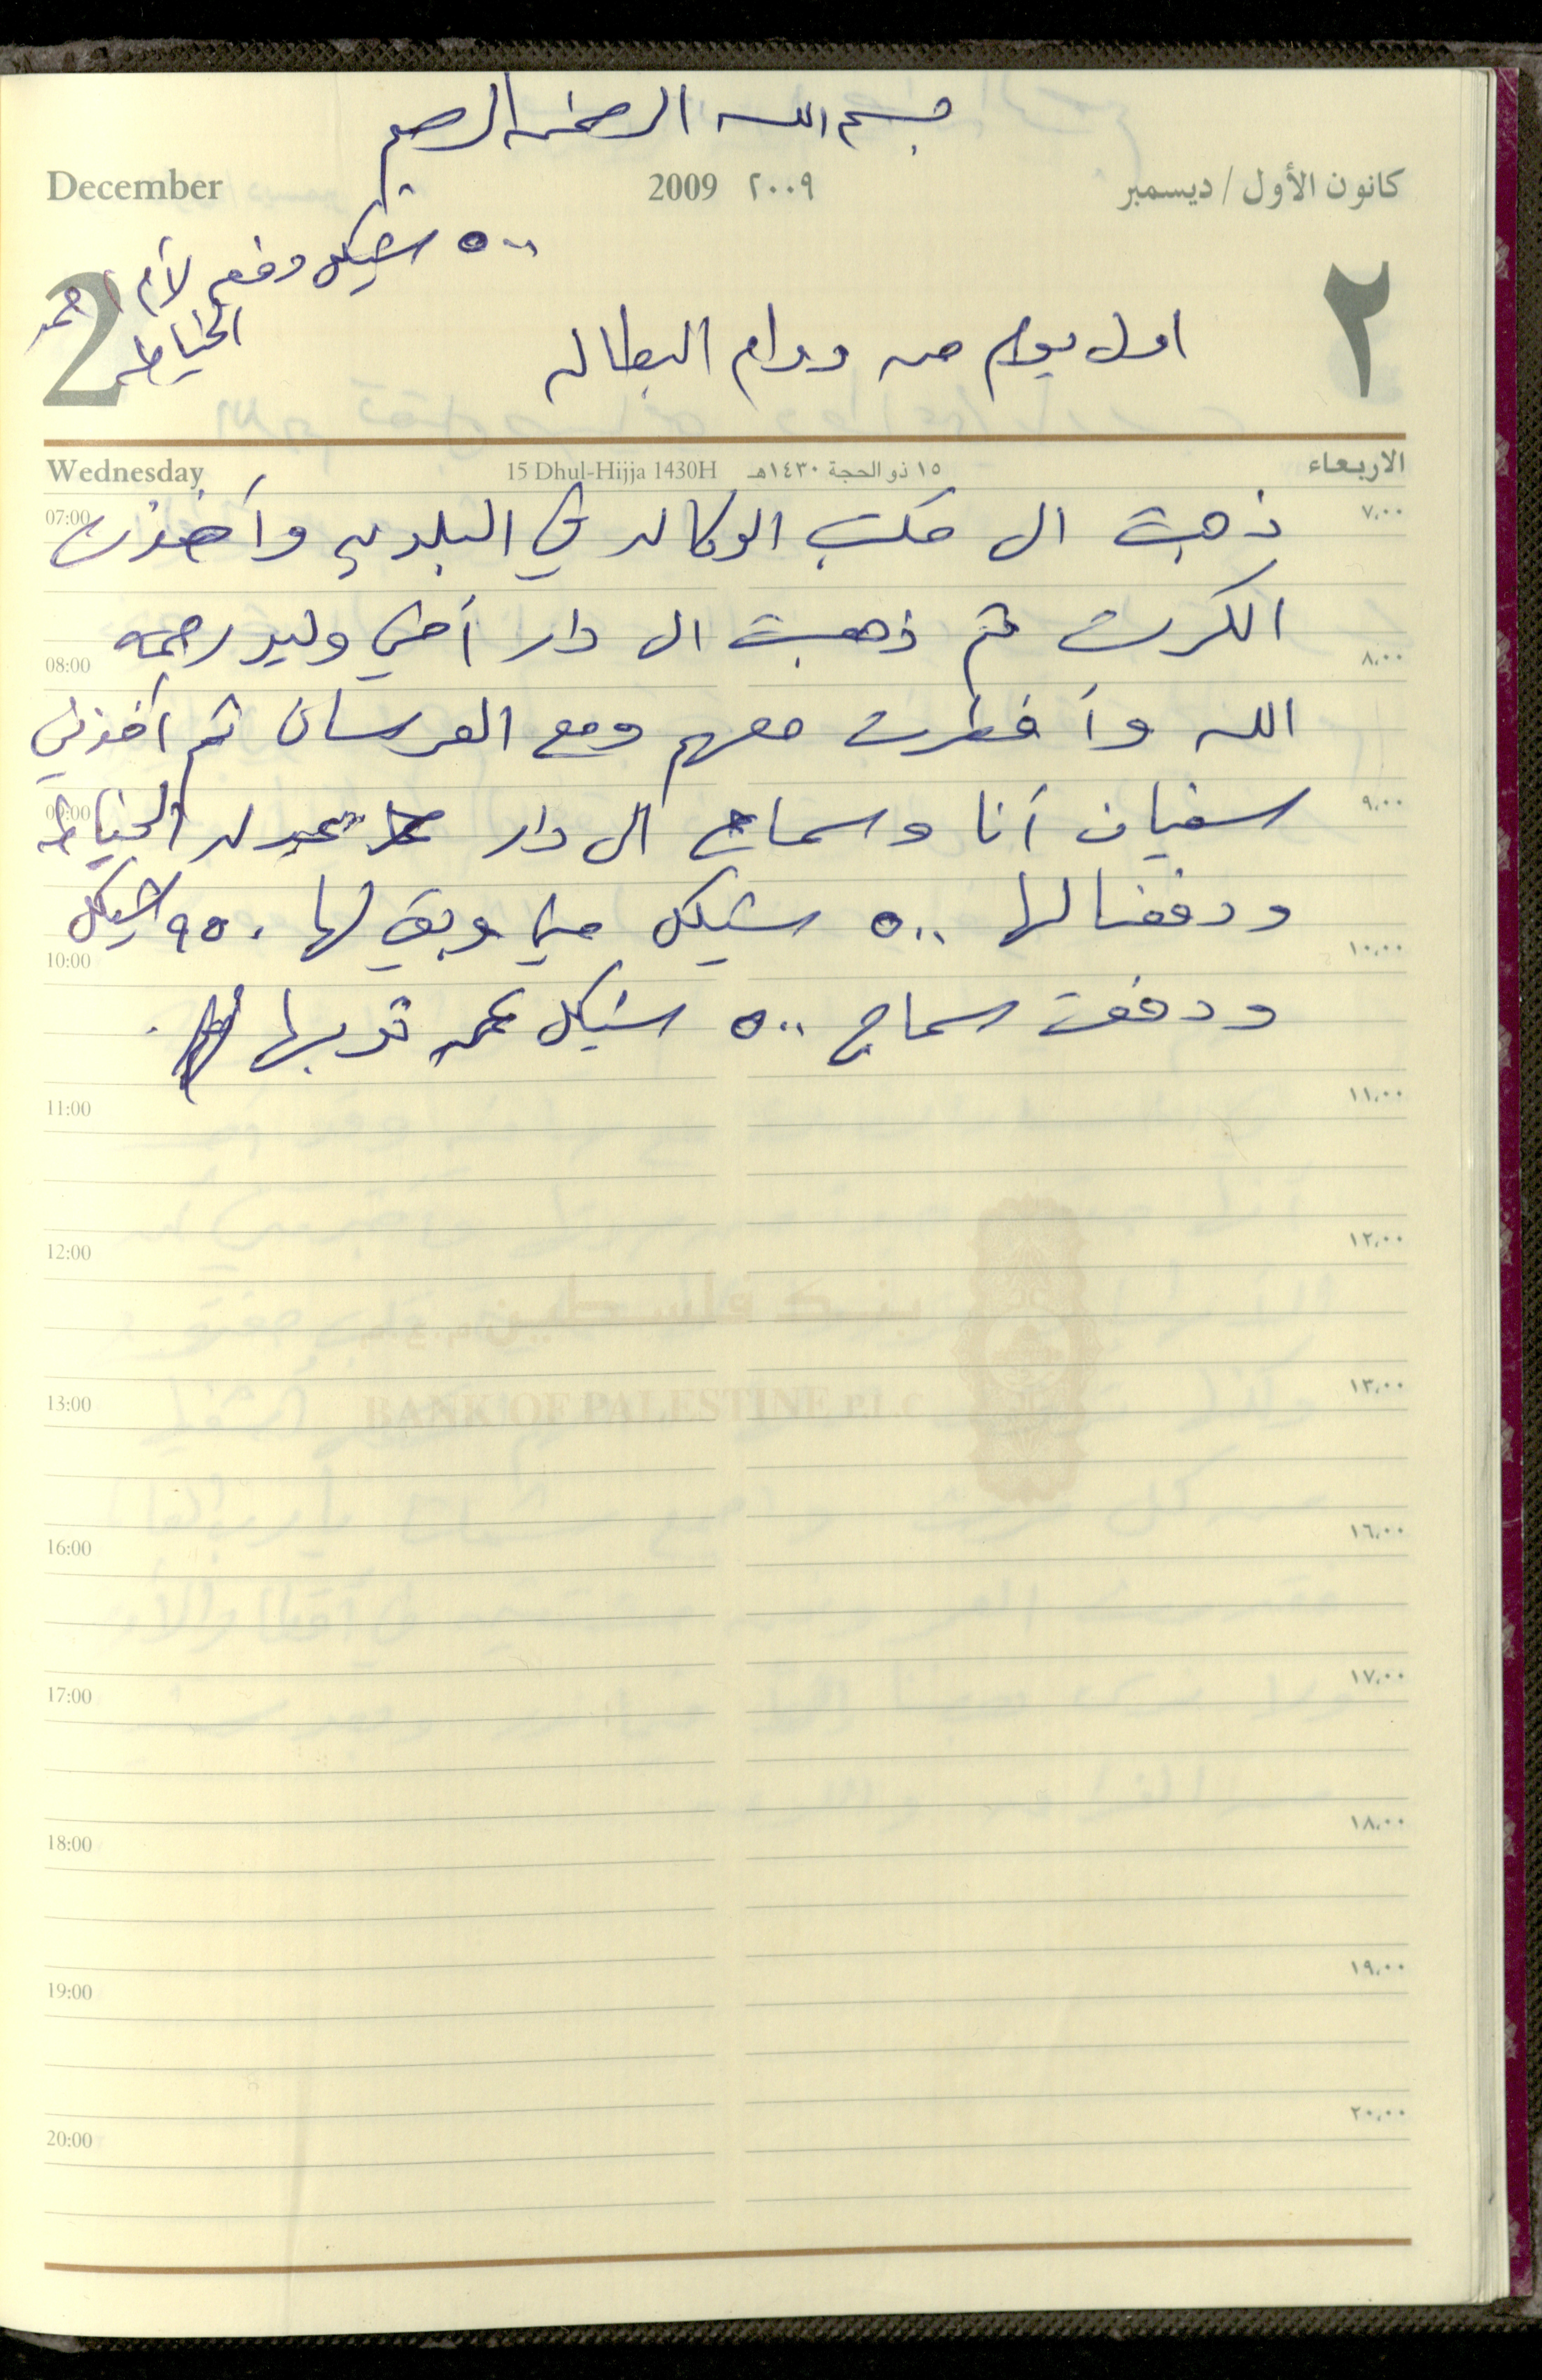 بسم الله الرحمن الرحيم
December 2009 ٢٠٠٩ كانون الأول / ديسمبر
٥٠٠ شيكل دفع لأم احمد
الخياطه
2 ٢
اول يوم من دوام البطاله
Wednesday 15 Dhul-Hijja 1430H ١٥ ذو الحجة ١٤٣٠هـ الاربعاء
07:00 ٧,٠٠
ذهبت الى مكتب الوكاله في البلديه وأخذت
الكرت ثم ذهبت الى دار أخي وليد رحمه
08:00 ٨,٠٠
الله وأفطرت معهم ومع العرسان ثم أخذني
09:00 ٩,٠٠
سفيان أنا وسماح الى دار الخياطه
ودفعنا لها ٥٠٠ شيكل مني وبقي لها ٩٥٠ شيكل
10:00 ١٠,٠٠
ودفعت سماح ٥٠٠ شيكل عن ثوبها
11:00 ١١,٠٠
12:00 ١٢,٠٠
بنك فلسطين
BANK OF PALESTINE P.L.C
13:00 ١٣,٠٠
16:00 ١٦,٠٠
17:00 ١٧,٠٠
18:00 ١٨,٠٠
19:00 ١٩,٠٠
20:00 ٢٠,٠٠